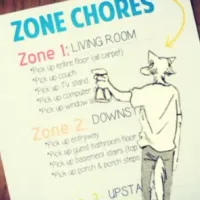 ZONE CHORES
Zone 1: LIVING ROOM
•Pick up entire floor (all carpet)
•Pick up couch
•Pick up TV stand
•Pick up computer
•Pick up window
Zone 2
DOWNST
•Pick up entryway
•Pick up guest bathroom floor
•Pick up basement stairs (top
•Pick up porch & porch steps
3
UPSTA